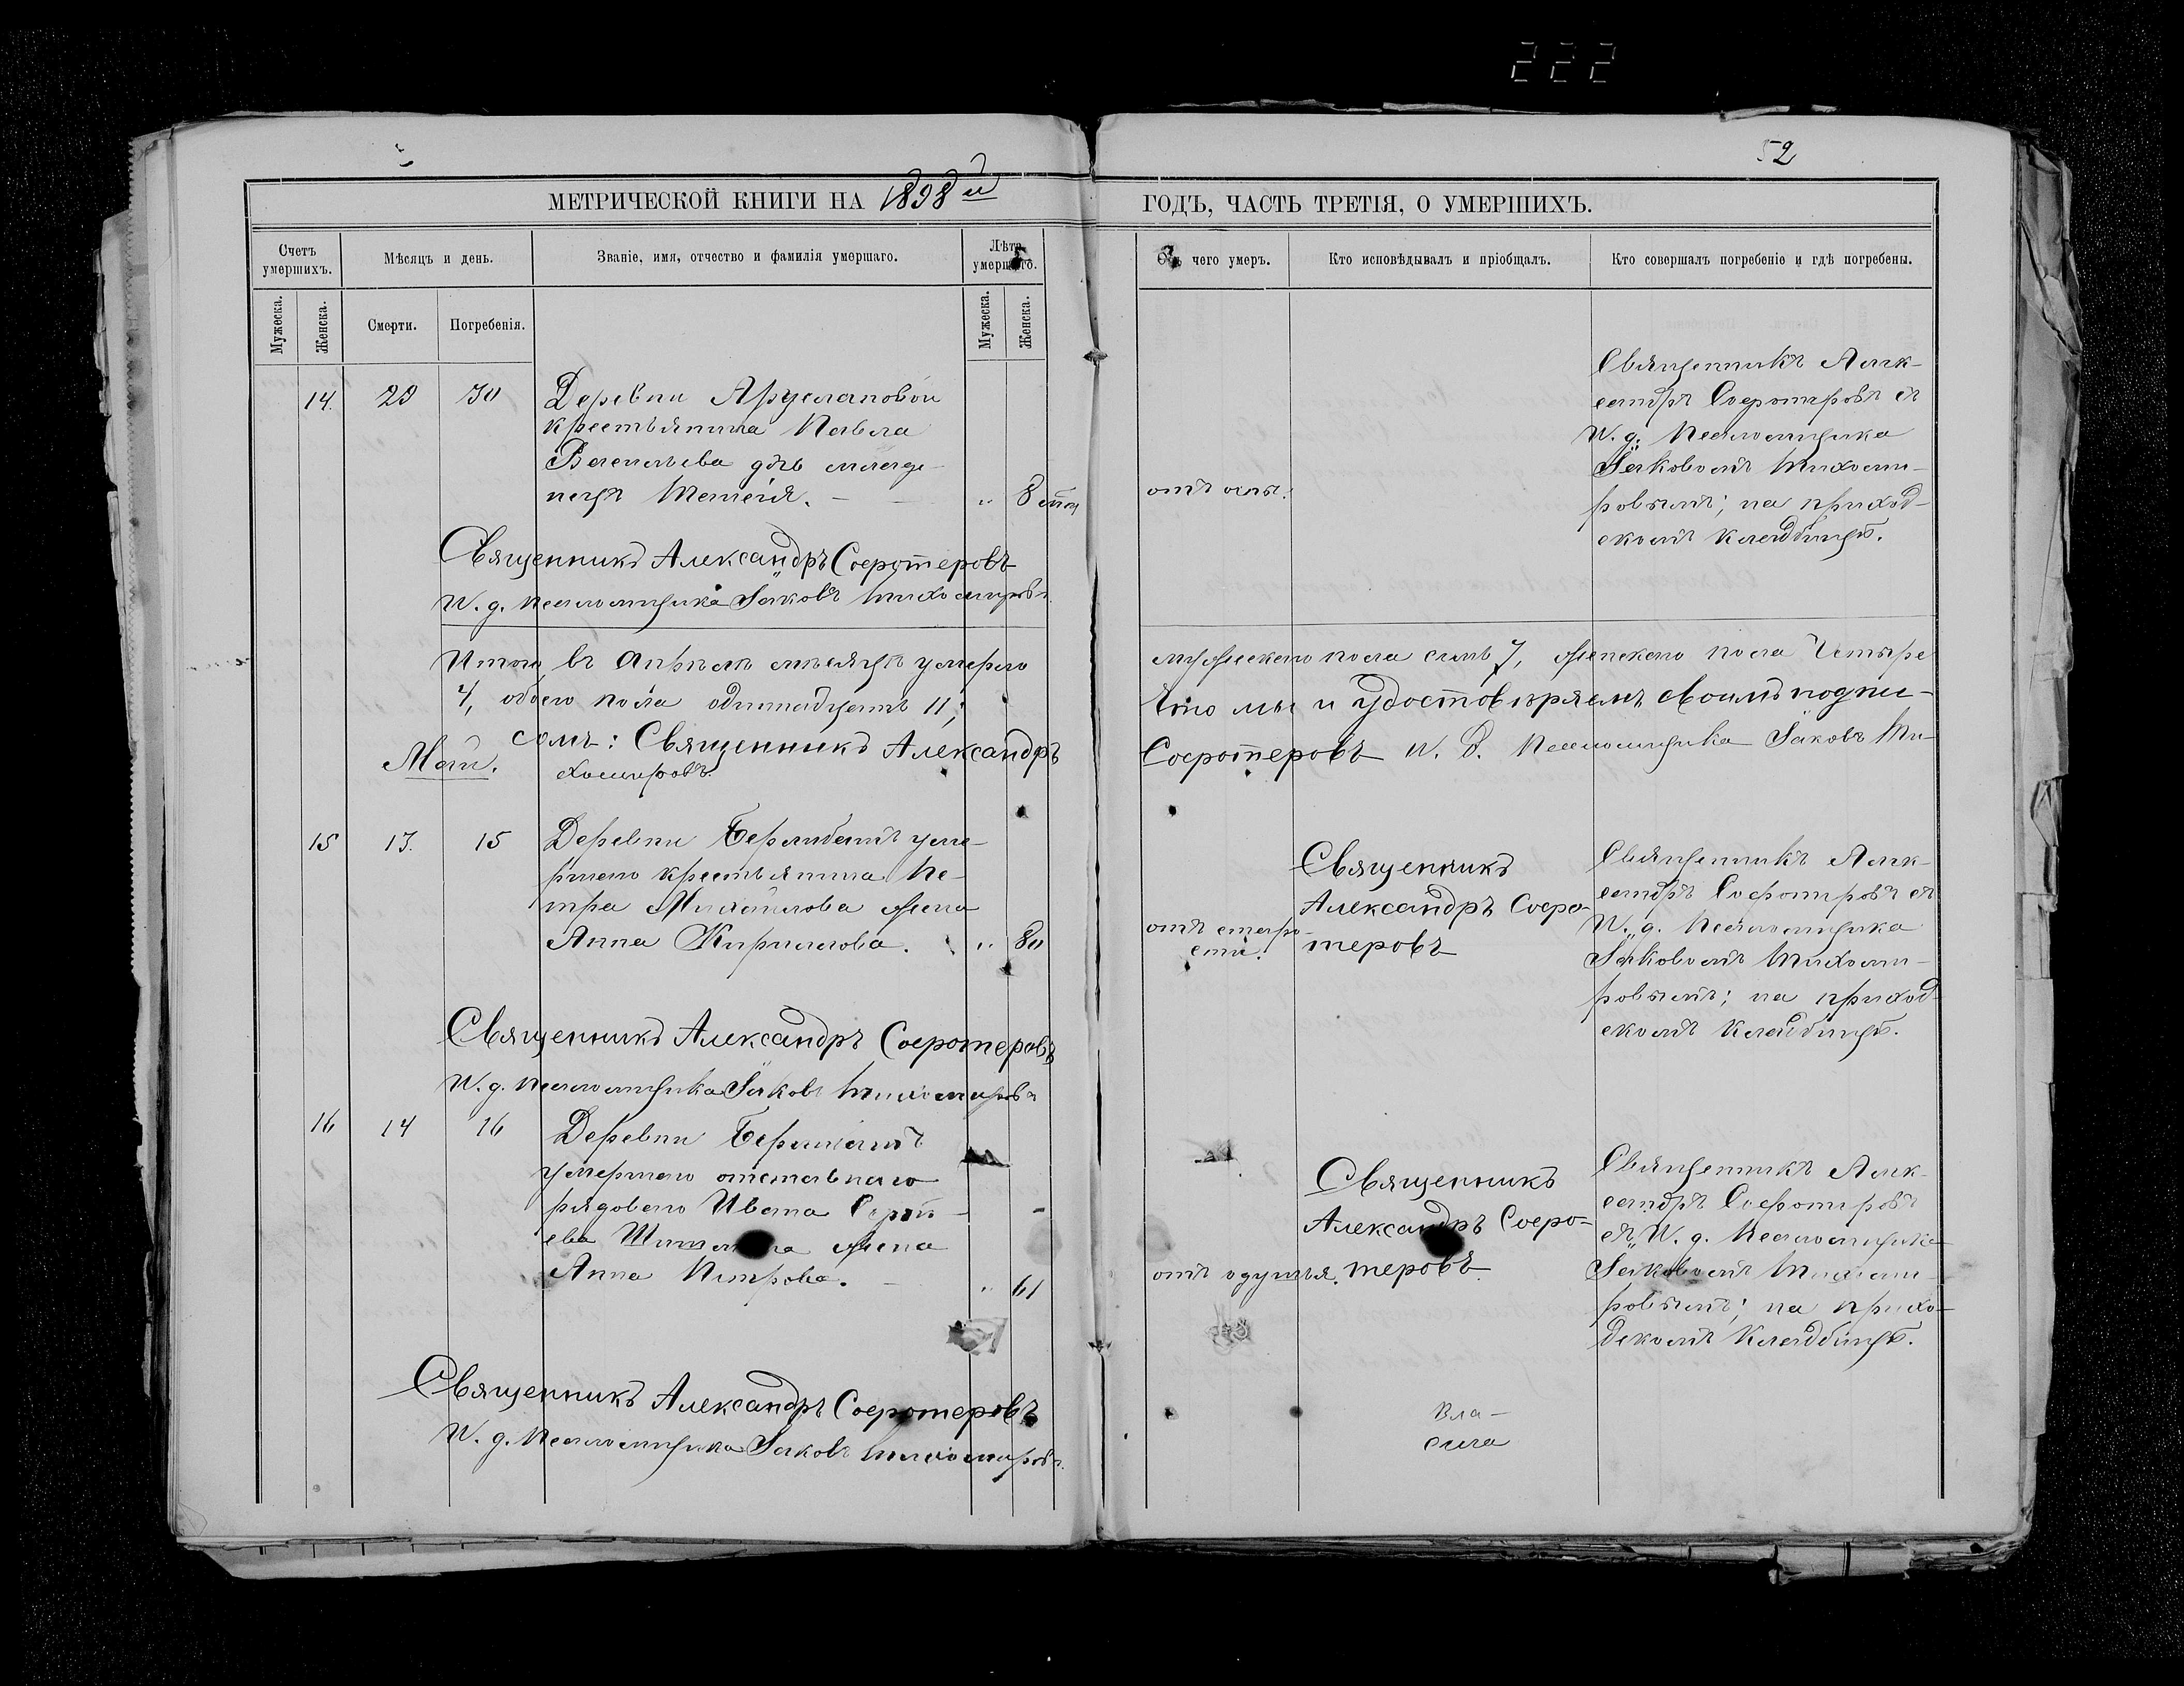 222
52
МЕТРИЧЕСКОЙ КНИГИ НА 1898й
ГОДЪ, ЧАСТЬ ТРЕТІЯ, О УМЕРШИХЪ.
Счетъ умершихъ.
Мѣсяцъ и день.
Званіе, имя, отчество и фамилія умершаго.
Лѣта умершаго.
чего умеръ.
Кто исповѣдывалъ и пріобщалъ.
Кто совершалъ погребеніе и гдѣ погребены.
Мужеска.
Женска.
Смерти.
Погребенія.
Мужеска.
Женска.
14.
29
30
Деревни Аруслановой
крестьянина Павла
Васильева дочь младе-
нецъ Таисія.
" 8 мѣ
отъ оспы.
Священникъ Алек-
сандръ Соеротеровъ съ
И. д. Псаломщика
Іаковомъ Тихоми-
ровымъ; на приход-
скомъ кладбищѣ.
Священникъ Александръ Соеротеровъ
И. д. Псаломщика Іаковъ Тихомировъ.
Итого въ Апрѣлѣ мѣсяцѣ умерло
мужескаго пола семь 7, женскаго пола Четыре
4, обоего пола одиннадцать 11;
Что мы и удостовѣряемъ своимъ подпи-
сомъ: Священникъ Александръ
Соеротеровъ И. д. Псаломщика Іаковъ Ти-
хомировъ.
Май.
15
13.
15
Деревни уме-
ршаго крестьянина Пе-
тра Михайлова жена
Анна Кириллова.
" 80
отъ старо-
сти.
Священникъ
Александръ Соеро-
теровъ
Священникъ Алек-
сандръ Соеротеровъ съ
И. д. Псаломщика
Іаковомъ Тихоми-
ровымъ; на приход-
скомъ кладбищѣ.
Священникъ Александръ Соеротеровъ
И. д. Псаломщика Іаковъ Тихомировъ
16
14
16
Деревни
умершаго отставнаго
рядового Ивана
жена
Анна Петрова.
" 61
отъ удушья.
Священникъ
Александръ Соеро-
теровъ
Священникъ Алек-
сандръ Соеротеровъ
съ И. д. Псаломщика
Іаковомъ Тихоми-
ровымъ; на прихо-
дскомъ кладбищѣ.
Священникъ Александръ Соеротеровъ
И. д. Псаломщика Іаковъ Тихомировъ.
Вла-